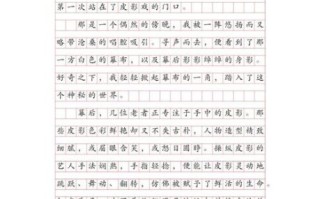 第一次站在了皮影戏的门口。
那是一个偶然的傍晚，我被一阵悠扬而又
略带沧桑的唱腔吸引。寻声而去，便看到了那
一方白色的幕布，以及幕后影影绰绰的身影。
好奇之下，我轻轻掀起幕布的一角，踏入了这
个神秘的世界。
幕后，几位老者正专注于手中的皮影。那
些皮影色彩鲜艳却又不失古朴，人物造型精致
细腻，或眉眼含笑，或怒目圆睁。操纵皮影的
艺人手法娴熟，手指轻抬，便能让皮影灵动地
跳跃、舞动、翻转，仿佛被赋予了鲜活的生命。